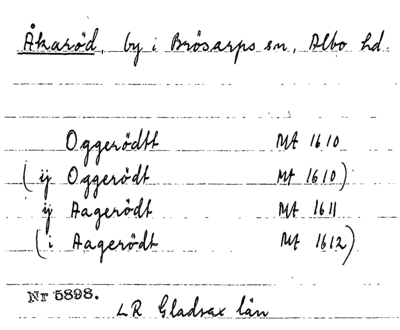 Åkaröd, by i Brösarps sn, Albo hd.
Oggerödtt Mt 1610
(ij Oggerödt Mt 1610)
ij Aagerödt Mt 1611
(i Aagerödt Mt 1612)
Nr 5898.
LR Gladsax län